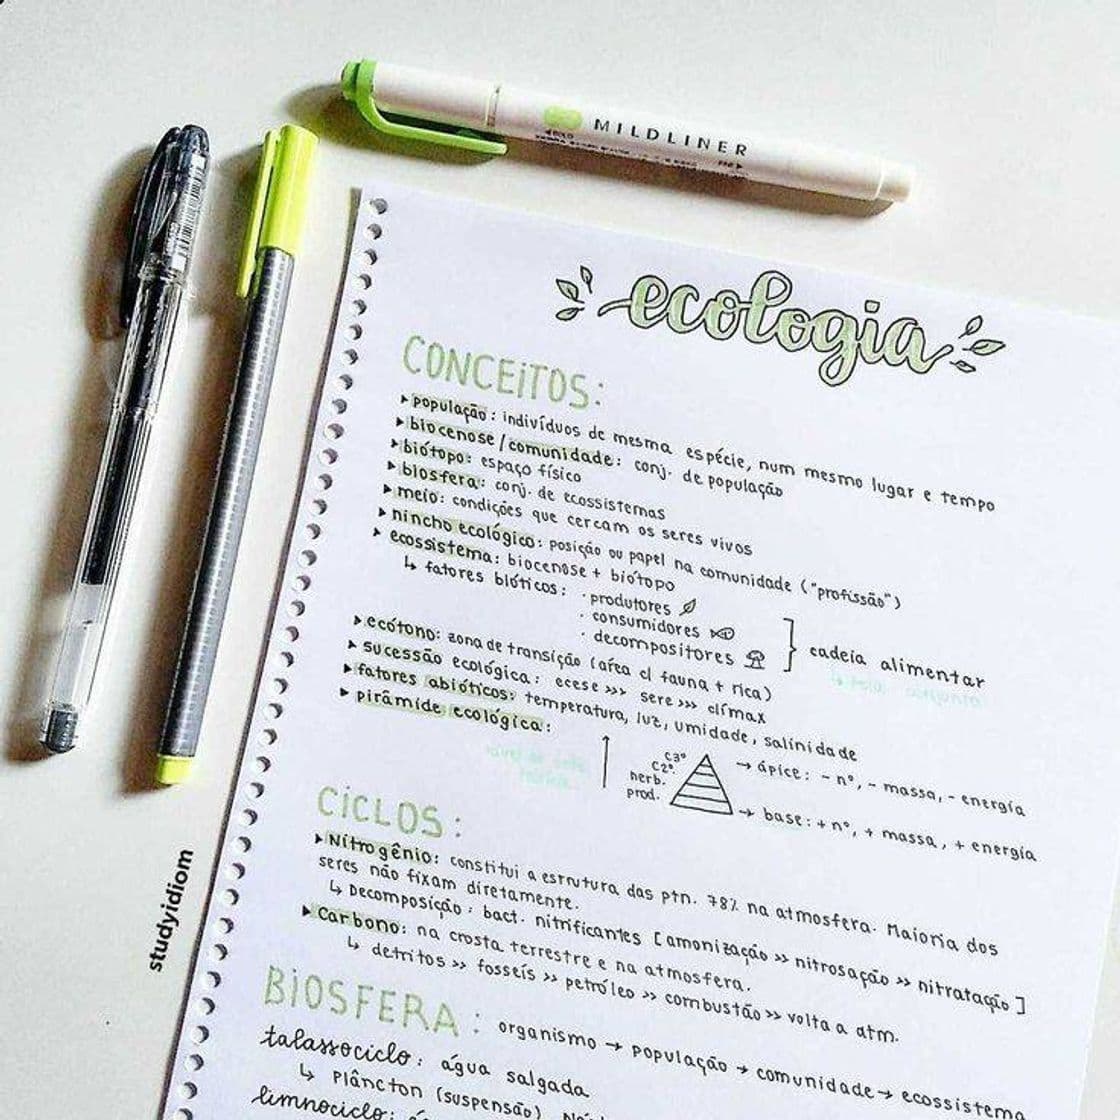 MILDLINER
ecologia
CONCEITOS:
▸ população: indivíduos de mesma espécie, num mesmo lugar e tempo
▸ biocenose/comunidade: conj. de população
▸ biótopo: espaço físico
▸ biosfera: conj. de ecossistemas
▸ meio: condições que cercam os seres vivos
▸ nincho ecológico: posição ou papel na comunidade ("profissão")
▸ ecossistema: biocenose + biótopo
↳ fatores bióticos: · produtores
· consumidores
· decompositores
} cadeia alimentar
▸ ecótono: zona de transição (área c/ fauna + rica)
▸ sucessão ecológica: ecese >>> sere >>> clímax
▸ fatores abióticos: temperatura, luz, umidade, salinidade
▸ pirâmide ecológica:
C3º
C2º
herb.
prod.
→ ápice: - nº, - massa, - energia
→ base: + nº, + massa, + energia
CICLOS:
▸ Nitrogênio: constitui a estrutura das ptn. 78% na atmosfera. Maioria dos
seres não fixam diretamente.
↳ Decomposição: bact. nitrificantes [amonização >> nitrosação >> nitratação]
▸ Carbono: na crosta terrestre e na atmosfera.
↳ detritos >> fosseís >> petróleo >> combustão >> volta a atm.
BIOSFERA: organismo → população → comunidade → ecossistema
talassociclo: água salgada
↳ Plâncton (suspensão)
limnociclo:
studyidiom